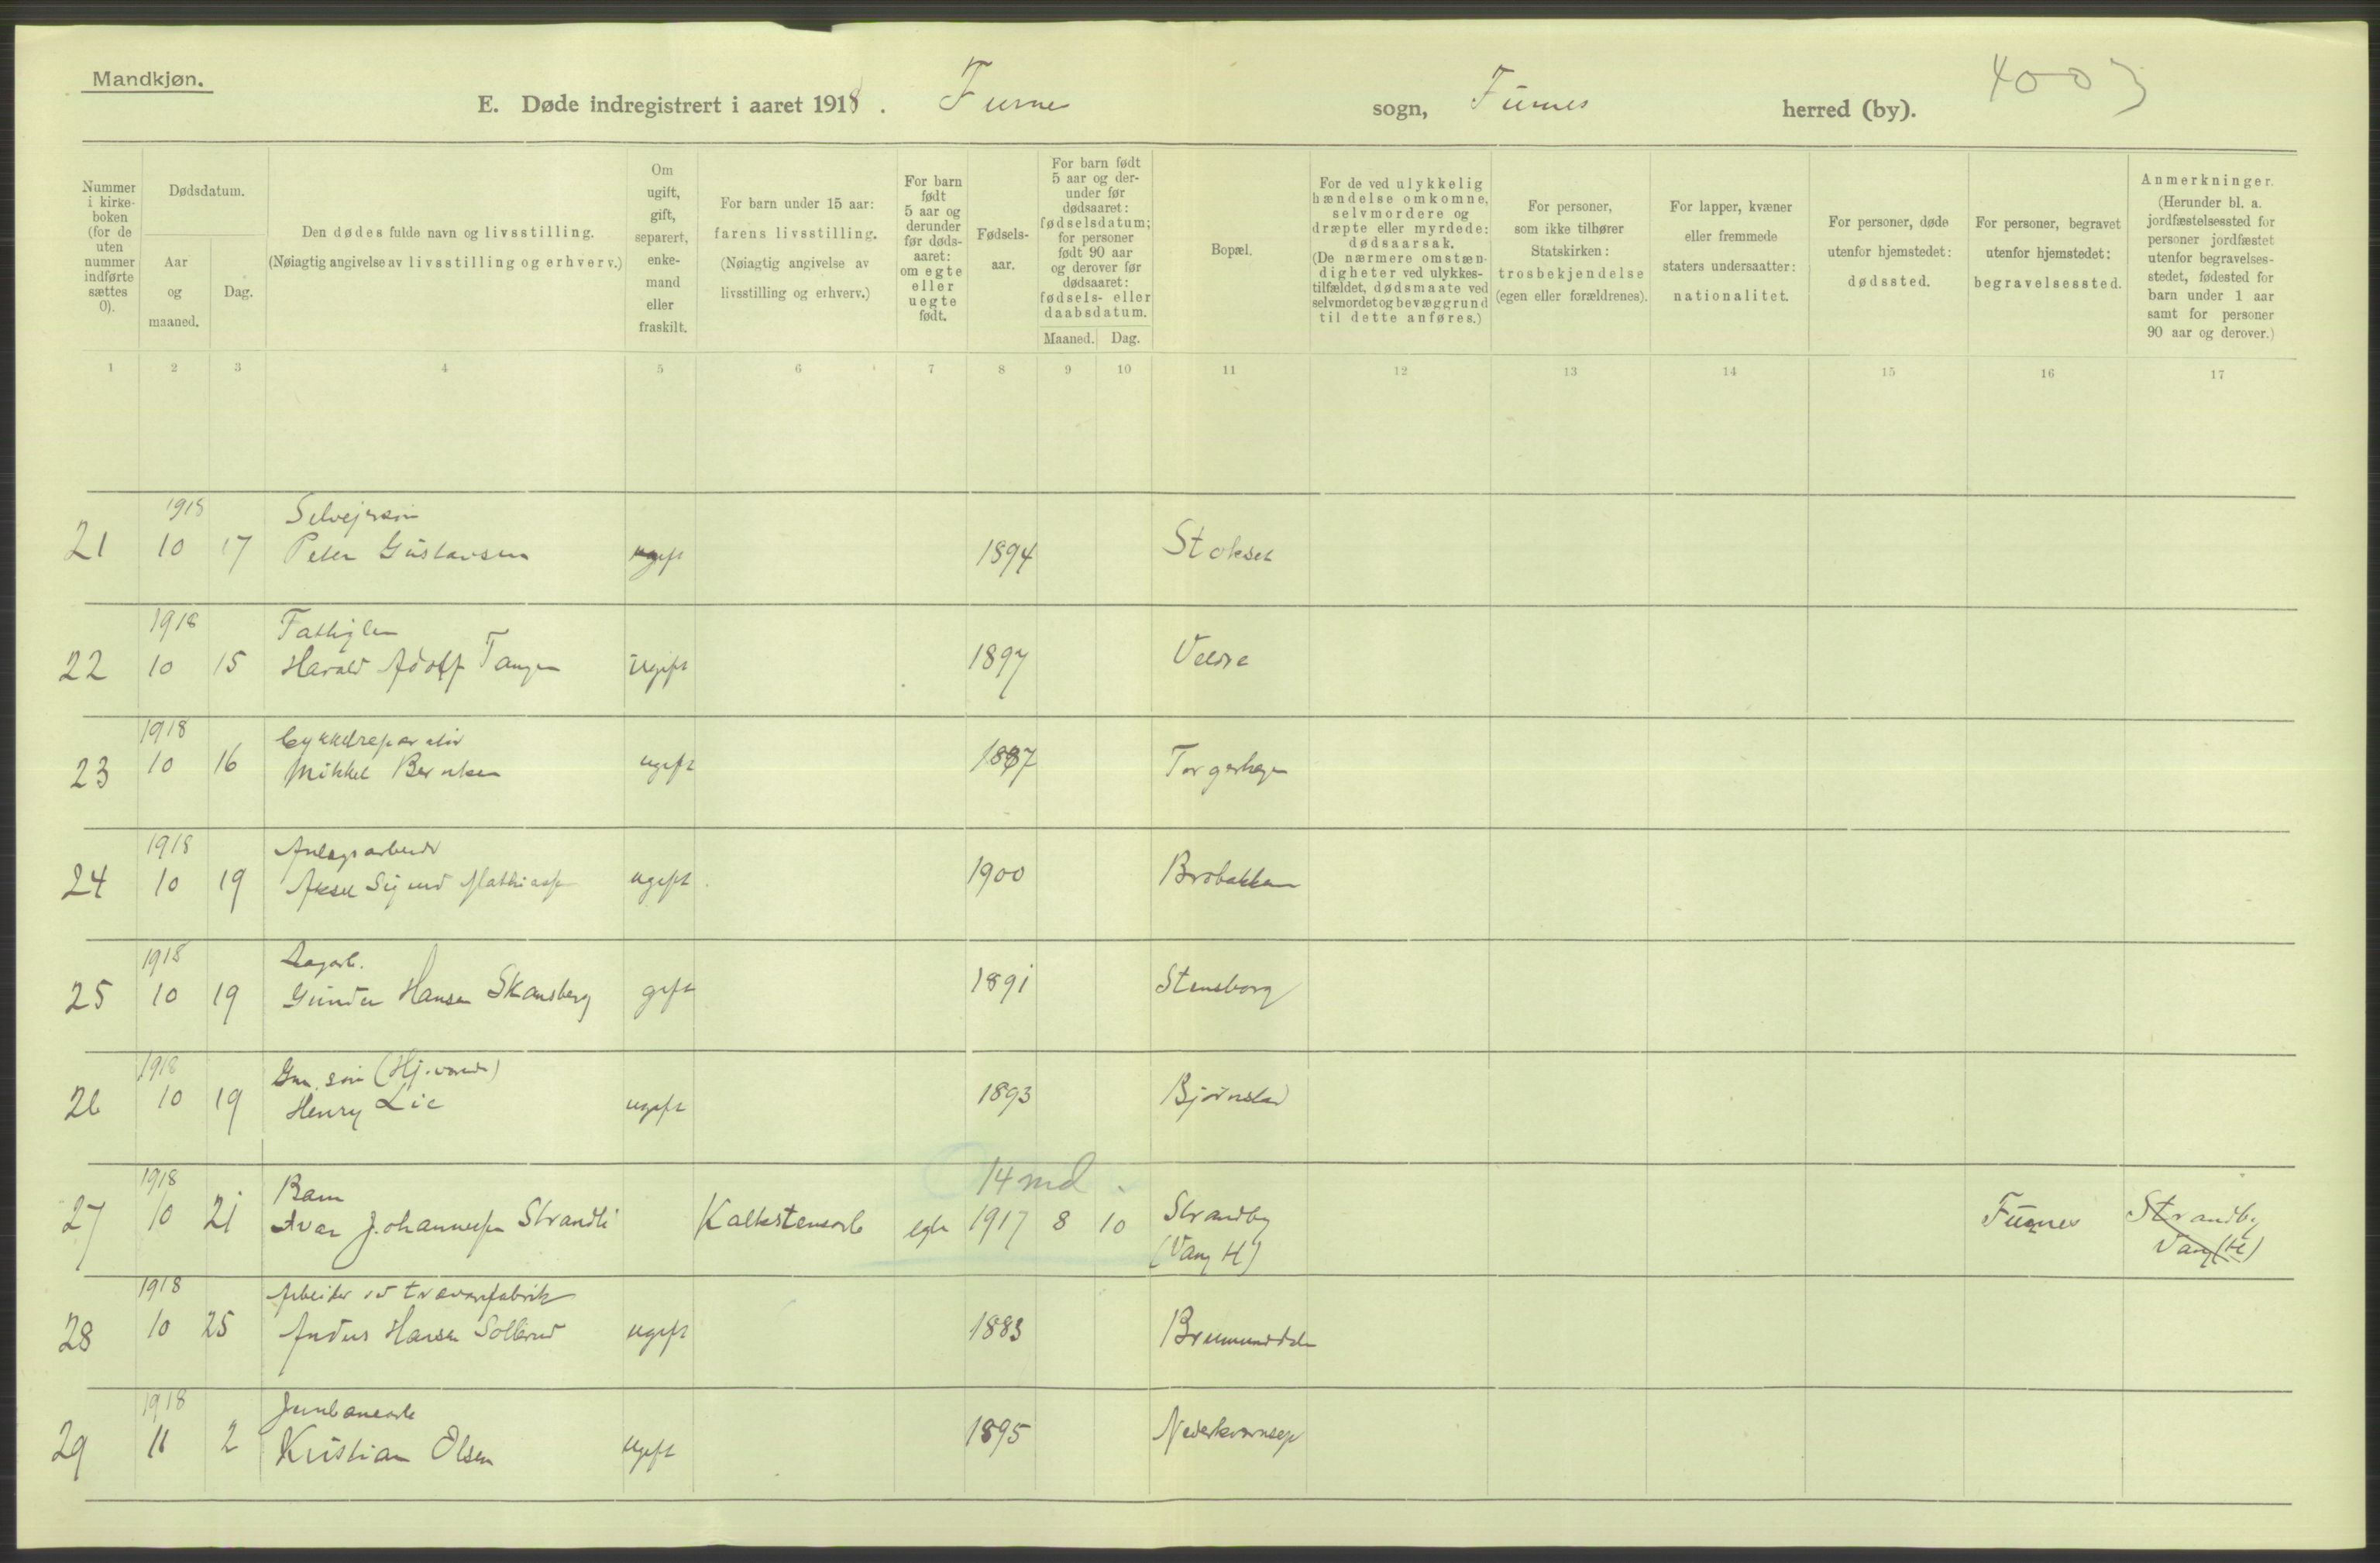 Mandkjøn.
E. Døde indregistrert i aaret 1918. Furnes sogn, Furnes herred (by). 4003
Nummer i kirkeboken (for de uten nummer indførte sættes 0).
Dødsdatum.
Aar og maaned.
Dag.
Den dødes fulde navn og livsstilling.
(Nøiagtig angivelse av livsstilling og erhverv.)
Om ugift, gift, separert, enkemand eller fraskilt.
For barn under 15 aar: farens livsstilling. (Nøiagtig angivelse av livsstilling og erhverv.)
For barn født 5 aar og derunder før dødsaaret: om egte eller uegte født.
Fødselsaar.
For barn født 5 aar og derunder før dødsaaret: fødselsdatum; for personer født 90 aar og derover før dødsaaret: fødsels- eller daabsdatum.
Maaned. Dag.
Bopæl.
For de ved ulykkelig hændelse omkomne, selvmordere og dræpte eller myrdede: dødsaarsak. (De nærmere omstændigheter ved ulykkestilfældet, dødsmaate ved selvmordet og bevæggrund til dette anføres.)
For personer, som ikke tilhører Statskirken: trosbekjendelse (egen eller forældrenes).
For lapper, kvæner eller fremmede staters undersaatter: nationalitet.
For personer, døde utenfor hjemstedet: dødssted.
For personer, begravet utenfor hjemstedet: begravelsessted.
Anmerkninger. (Herunder bl. a. jordfæstelsessted for personer jordfæstet utenfor begravelsesstedet, fødested for barn under 1 aar samt for personer 90 aar og derover.)
1 2 3 4 5 6 7 8 9 10 11 12 13 14 15 16 17
1918 Selvejersøn
21 10 17 Peter Gustavsen ugift 1894 Stokset
1918
22 10 15 Harald Adolf Tangen Ugift 1897 Veldre
1918 Cykkelreparatør
23 10 16 Mikkel Berntsen ugift 1887 Torgerhagen
1918 Anlægsarbeider
24 10 19 Aksel Sigurd Mathiassen ugift 1900 Brobakken
1918 Dagarb.
25 10 19 Gunder Hansen Skansberg gift 1891 Stensborg
1918 Gm. søn (Hj. værende)
26 10 19 Henry Lie ugift 1893 Bjørnstad
1918 Barn 14 md
27 10 21 Ivar Johannessen Strandli Kalkstensarb egte 1917 8 10 Strandby Furnes Strandby
(Vang H) Vang (H)
1918 Arbeider ved trævarefabrik
28 10 25 Anders Hansen Sollerud ugift 1883 Brumunddalen
1918 Jernbanearb
29 11 2 Kristian Olsen ugift 1895